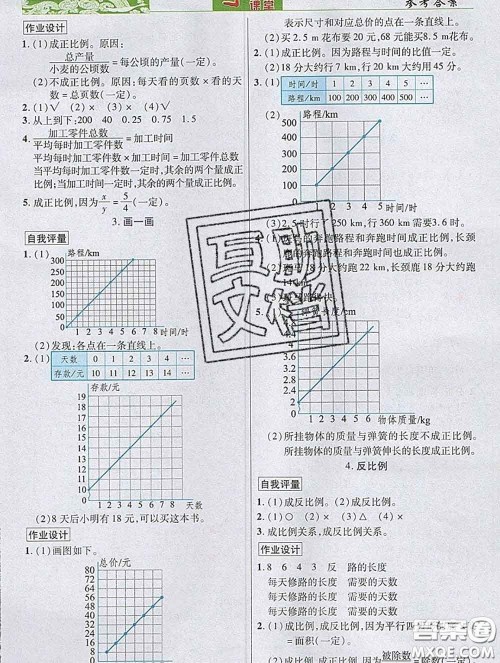 课堂
参考答案
作业设计
1. (1)成正比例。原因：
总产量/小麦的公顷数=每公顷的产量(一定)。
(2)不成正比例。原因：每天看的页数×看的天数=总页数(一定)。
2. (1)√ (2)× (3)× (4)√
3. 从上到下：200 40 0.25 0.75 1.5
4. 加工零件总数/平均每时加工零件数=加工时间
平均每时加工零件数×加工时间=加工零件总数
当平均每时加工零件数一定时，其余的两个量成正比例；当加工时间一定时，其余的两个量成正比例。
5. 成正比例，因为x/y=5/4(一定)。
3. 画一画
自我评量
1. (1) 路程/km
100
90
80
70
60
50
40
30
20
10
0 1 2 3 4 5 6 7 8 时间/时
(2)发现：各点在一条直线上。
2. (1) 天数 0 1 2 3 4 …
存款/元 10 11 12 13 14 …
存款/元
19
18
17
16
15
14
13
12
11
10
0 1 2 3 4 5 6 7 8 天数
(2)8天后小明有18元，可以买这本书。
作业设计
1. (1)画图如下。
总价/元
80
72
64
56
48
40
32
24
16
8
表示尺寸和对应总价的点在一条直线上。
(2)买2.5m花布要20元，68元能买8.5m花布。
2. (1)成正比例。因为路程与时间的比值一定。
(2)18分大约行7km，行20km大约用45分。
3. (1) 时间/时 1 2 3 4 5
路程/km 100 200 300 400 500
(2) 路程/km
500
450
400
350
300
250
200
150
100
50
0 1 2 3 4 5 时间/时
(3)2.5时行250km，行360km需要3.6时。
的奔跑路程和奔跑时间成正比例，长颈鹿的奔跑路程和奔跑时间成正比例。
(2) 18分大约跑22km，长颈鹿18分大约跑14km。
快。
5. 弹簧长度/cm
4
3.6
3.2
2.8
2.4
2
1.6
1.2
0.8
0.4
0 1 2 3 4 5 6 物体质量/kg
(2)所挂物体的质量与弹簧的长度不成正比例。所挂物体的质量与弹簧伸长的长度成正比例。
4. 反比例
自我评量
1. (1)成反比例。 (2)成反比例。
3. 成反比例关系。
作业设计
1. 8 6 4 3 反 路的长度
每天修路的长度 需要的天数
每天修路的长度 需要的天数
2. (1)成反比例，因为平行四
=面积(一定)。
(2)成正比例，因为 被除数
互助文档
答案圈
MXQE.COM